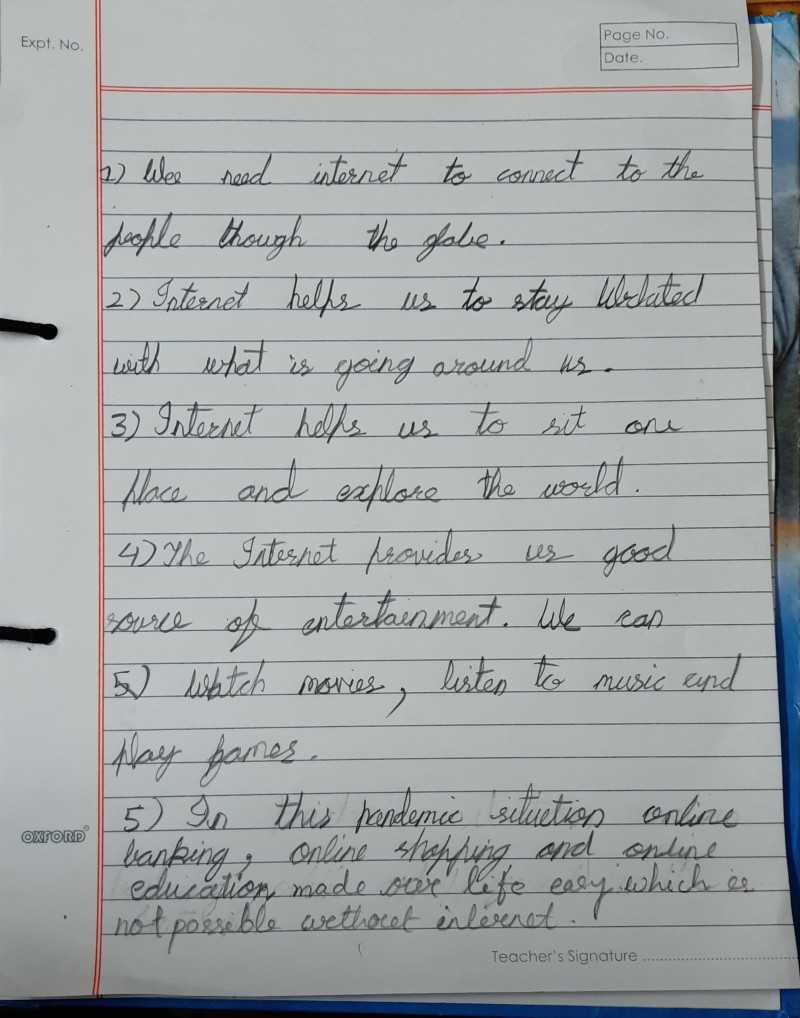 Expt. No.
Page No.
Date.
1) Wee need internet to connect to the
people though the globe.
2) Internet helps us to stay Updated
with what is going around us.
3) Internet helps us to sit one
place and explore the world.
4) The Internet provides us good
source of entertainment. We can
5) Watch movies, listen to music and
play games.
5) In this pandemic situation online
banking, online shopping and online
education made over life easy which is
not possible without internet.
OXFORD
Teacher's Signature